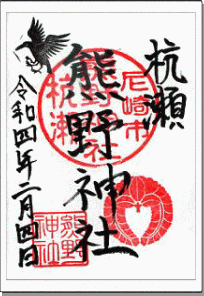 杭瀬
熊野神社
令和四年二月四日
尼崎市
杭瀬
熊野
神社